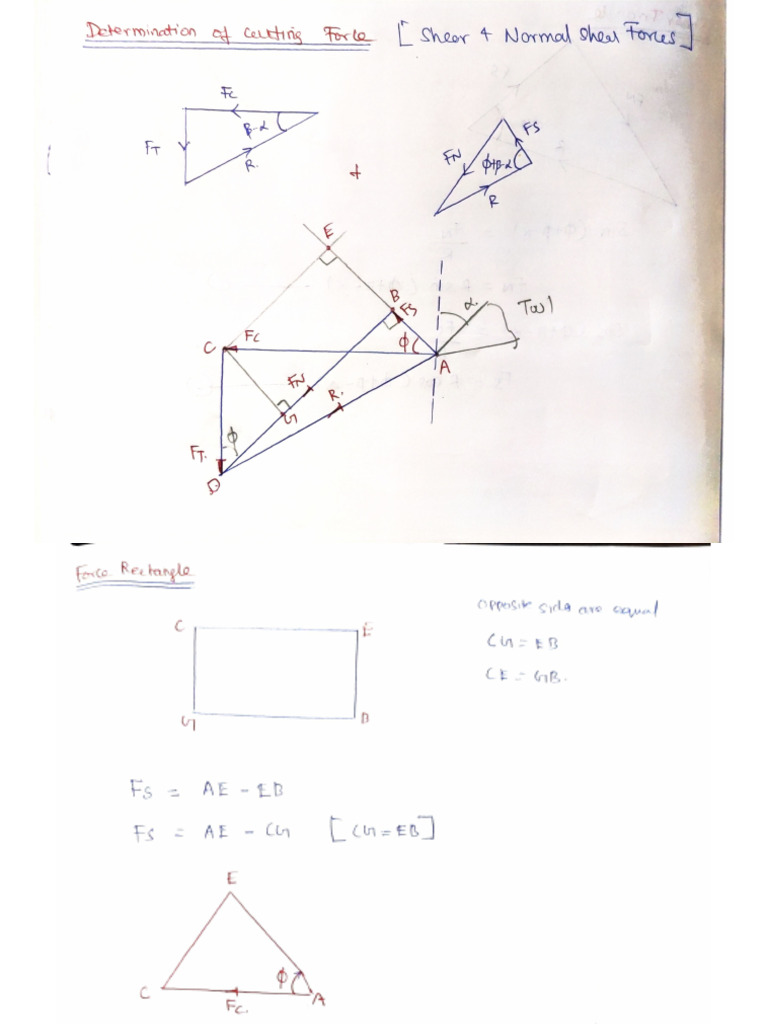 Determination of Cutting Force [Shear & Normal Shear Forces]
FC
β-α
FT
R.
&
FS
FN
ϕ+β-α
R
E
B
FS
α.
Tool
C
FC
ϕ
A
FN
R.
G
ϕ
FT.
D
Force Rectangle
opposite side are equal
C
E
CG = EB
CE = GB.
G
B
FS = AE - EB
FS = AE - CG [CG = EB]
E
ϕ
C
FC.
A